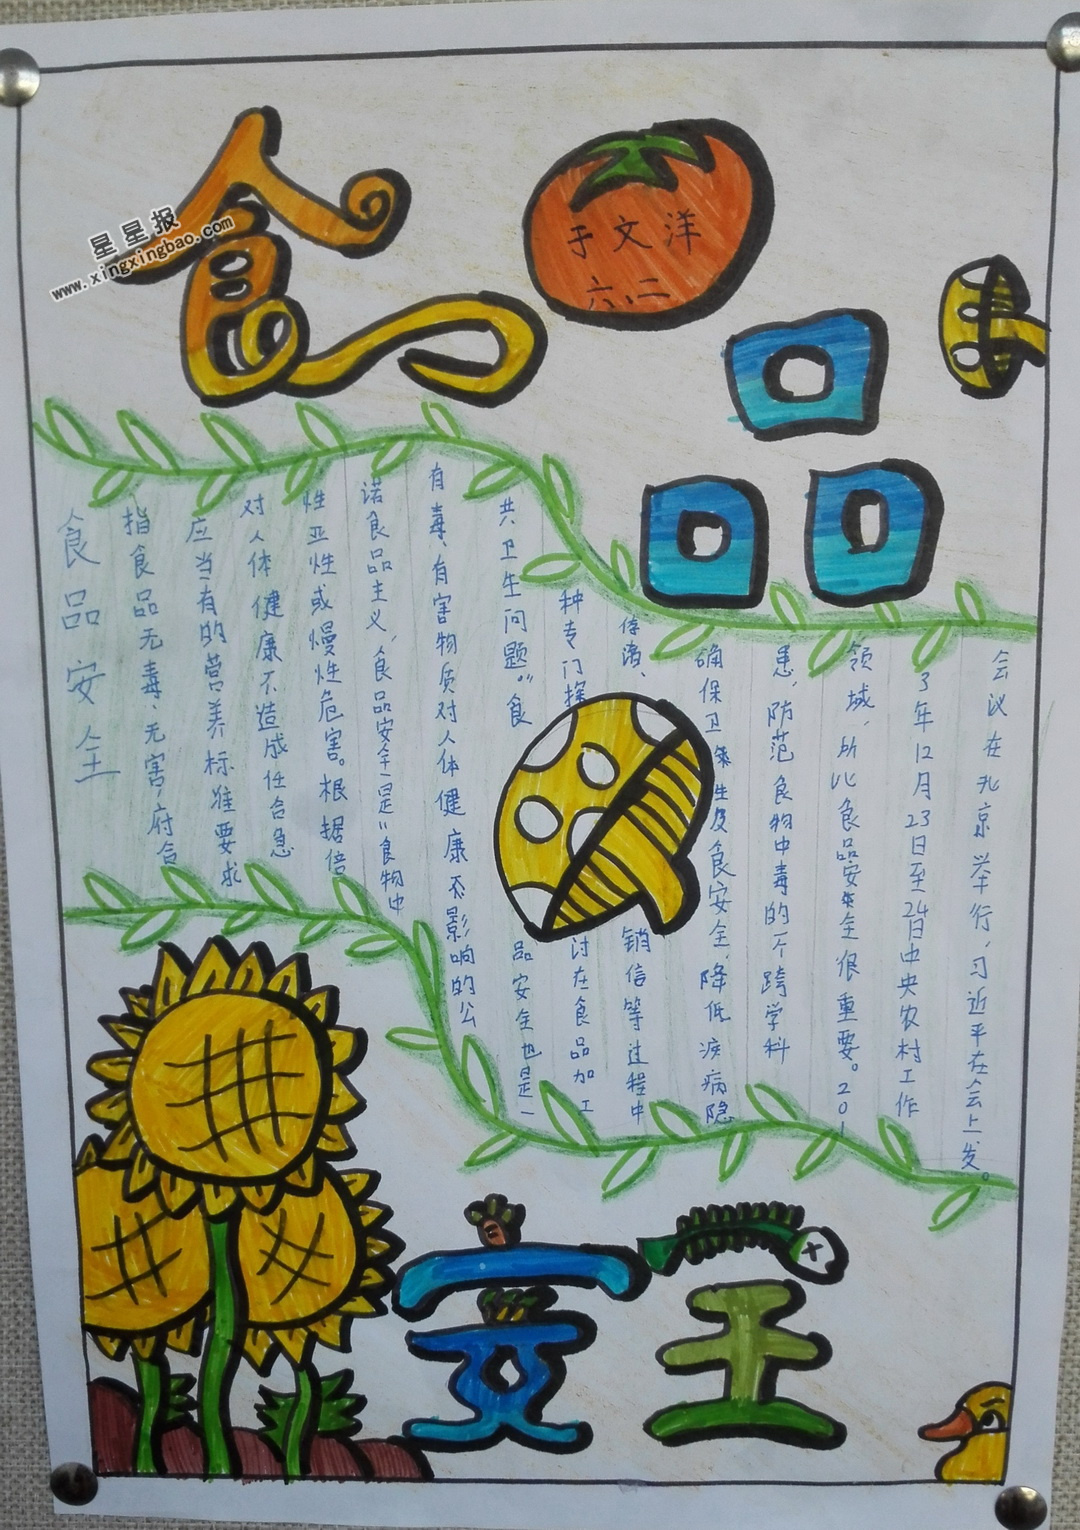 食品安全
星星报
www.xingxingbao.com
于文洋
六、二
食品安全
指食品无毒、无害,府合
应当有的营养标准要求
对人体健康不造成任合急
性亚性或慢性危害。根据倍
诺食品主义,食品安全是"食物中
有毒、有害物质对人体健康不影响的公
共卫生问题。"食品安全也是一
种专门探讨在食品加工
销信等过程中
确保卫生及食安全,降低疾病隐
患,防范食物中毒的一个跨学科
领域,所以食品安全很重要。201
3年12月23日至24日中央农村工作
会议在北京举行,习近平在会上发。